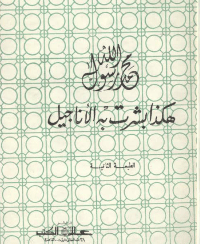 محمد رسول الله
هكذا بشرت به الأناجيل
الطبعة الثانية
عالم الكتب